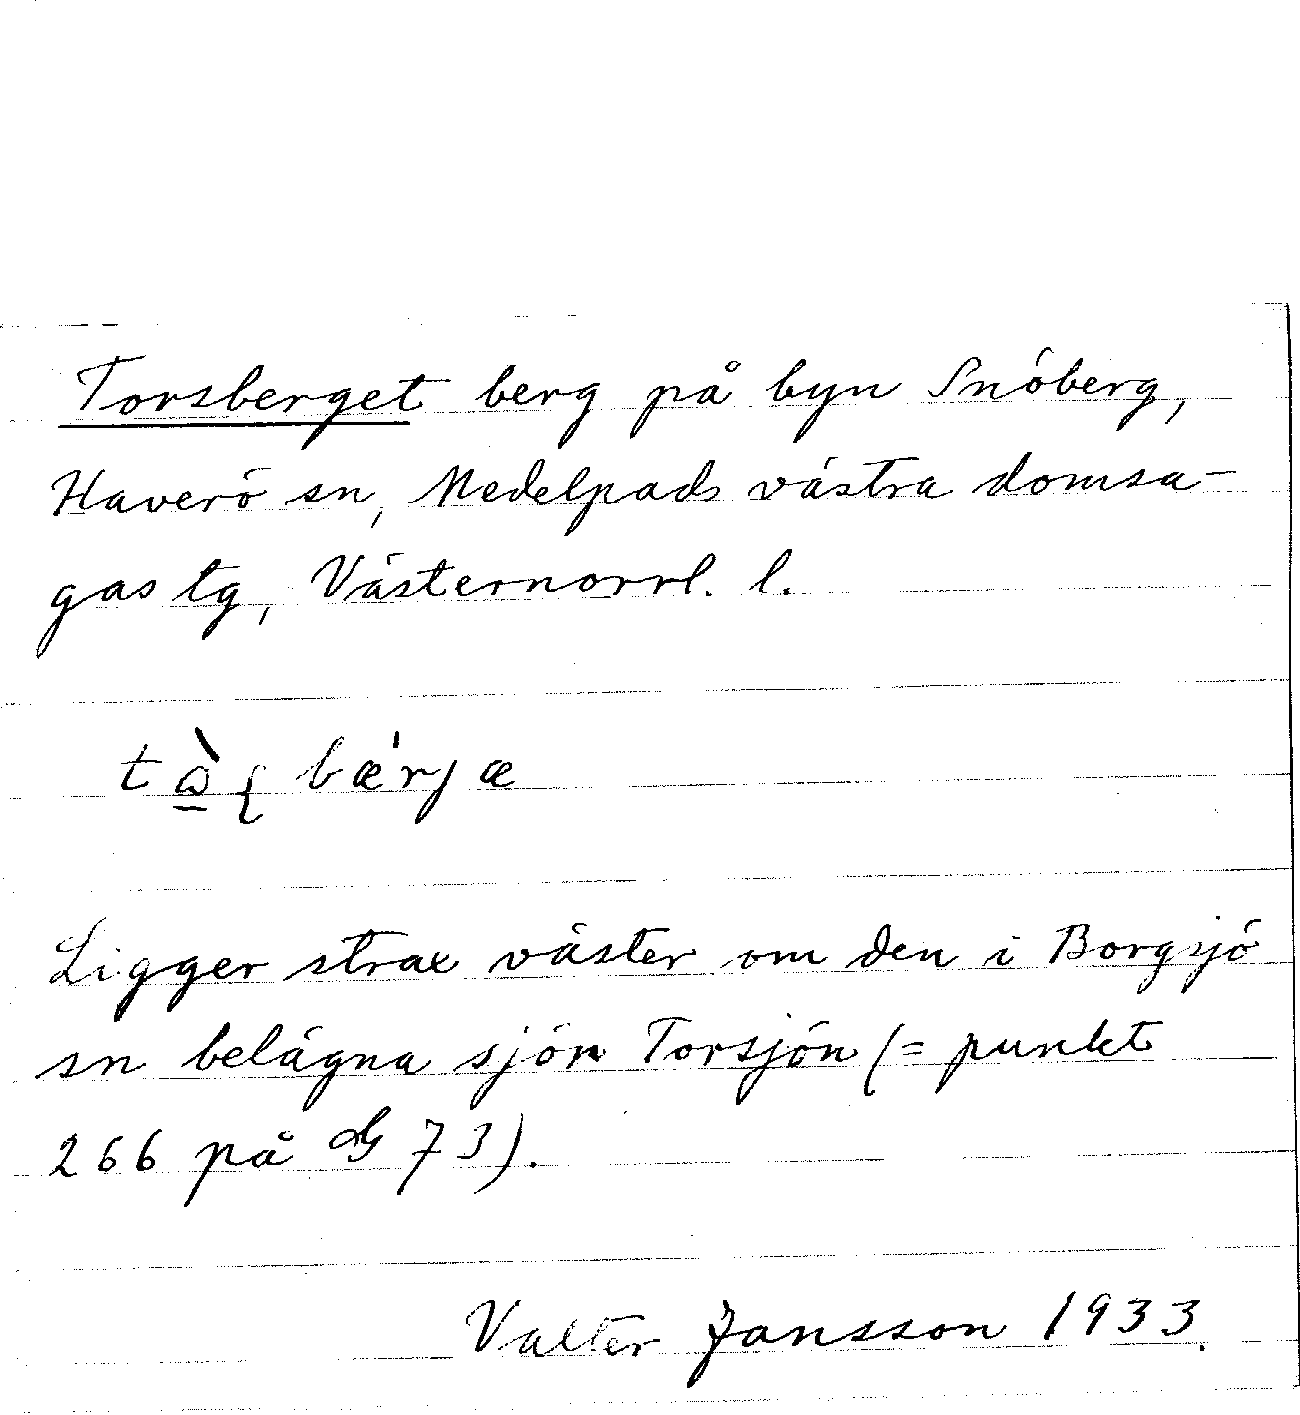 Torsberget berg på byn Snöberg,
Haverö sn, Medelpads västra domsa-
gas tg, Västernorrl. l.
bærjæ
Ligger strax väster om den i Borgsjö
sn belägna sjön Torsjön (= punkt
266 på 73).
Valter Jansson 1933.